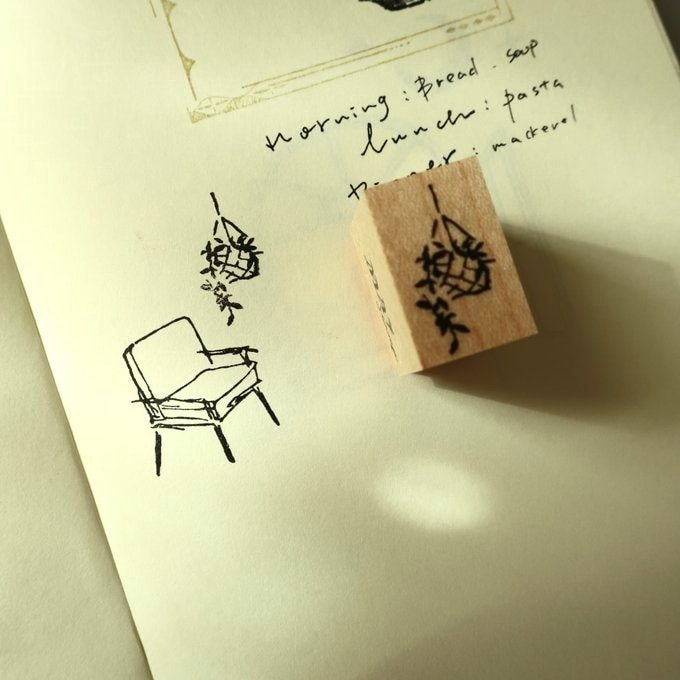 Morning : Bread . soup
lunch : pasta
: mackerel